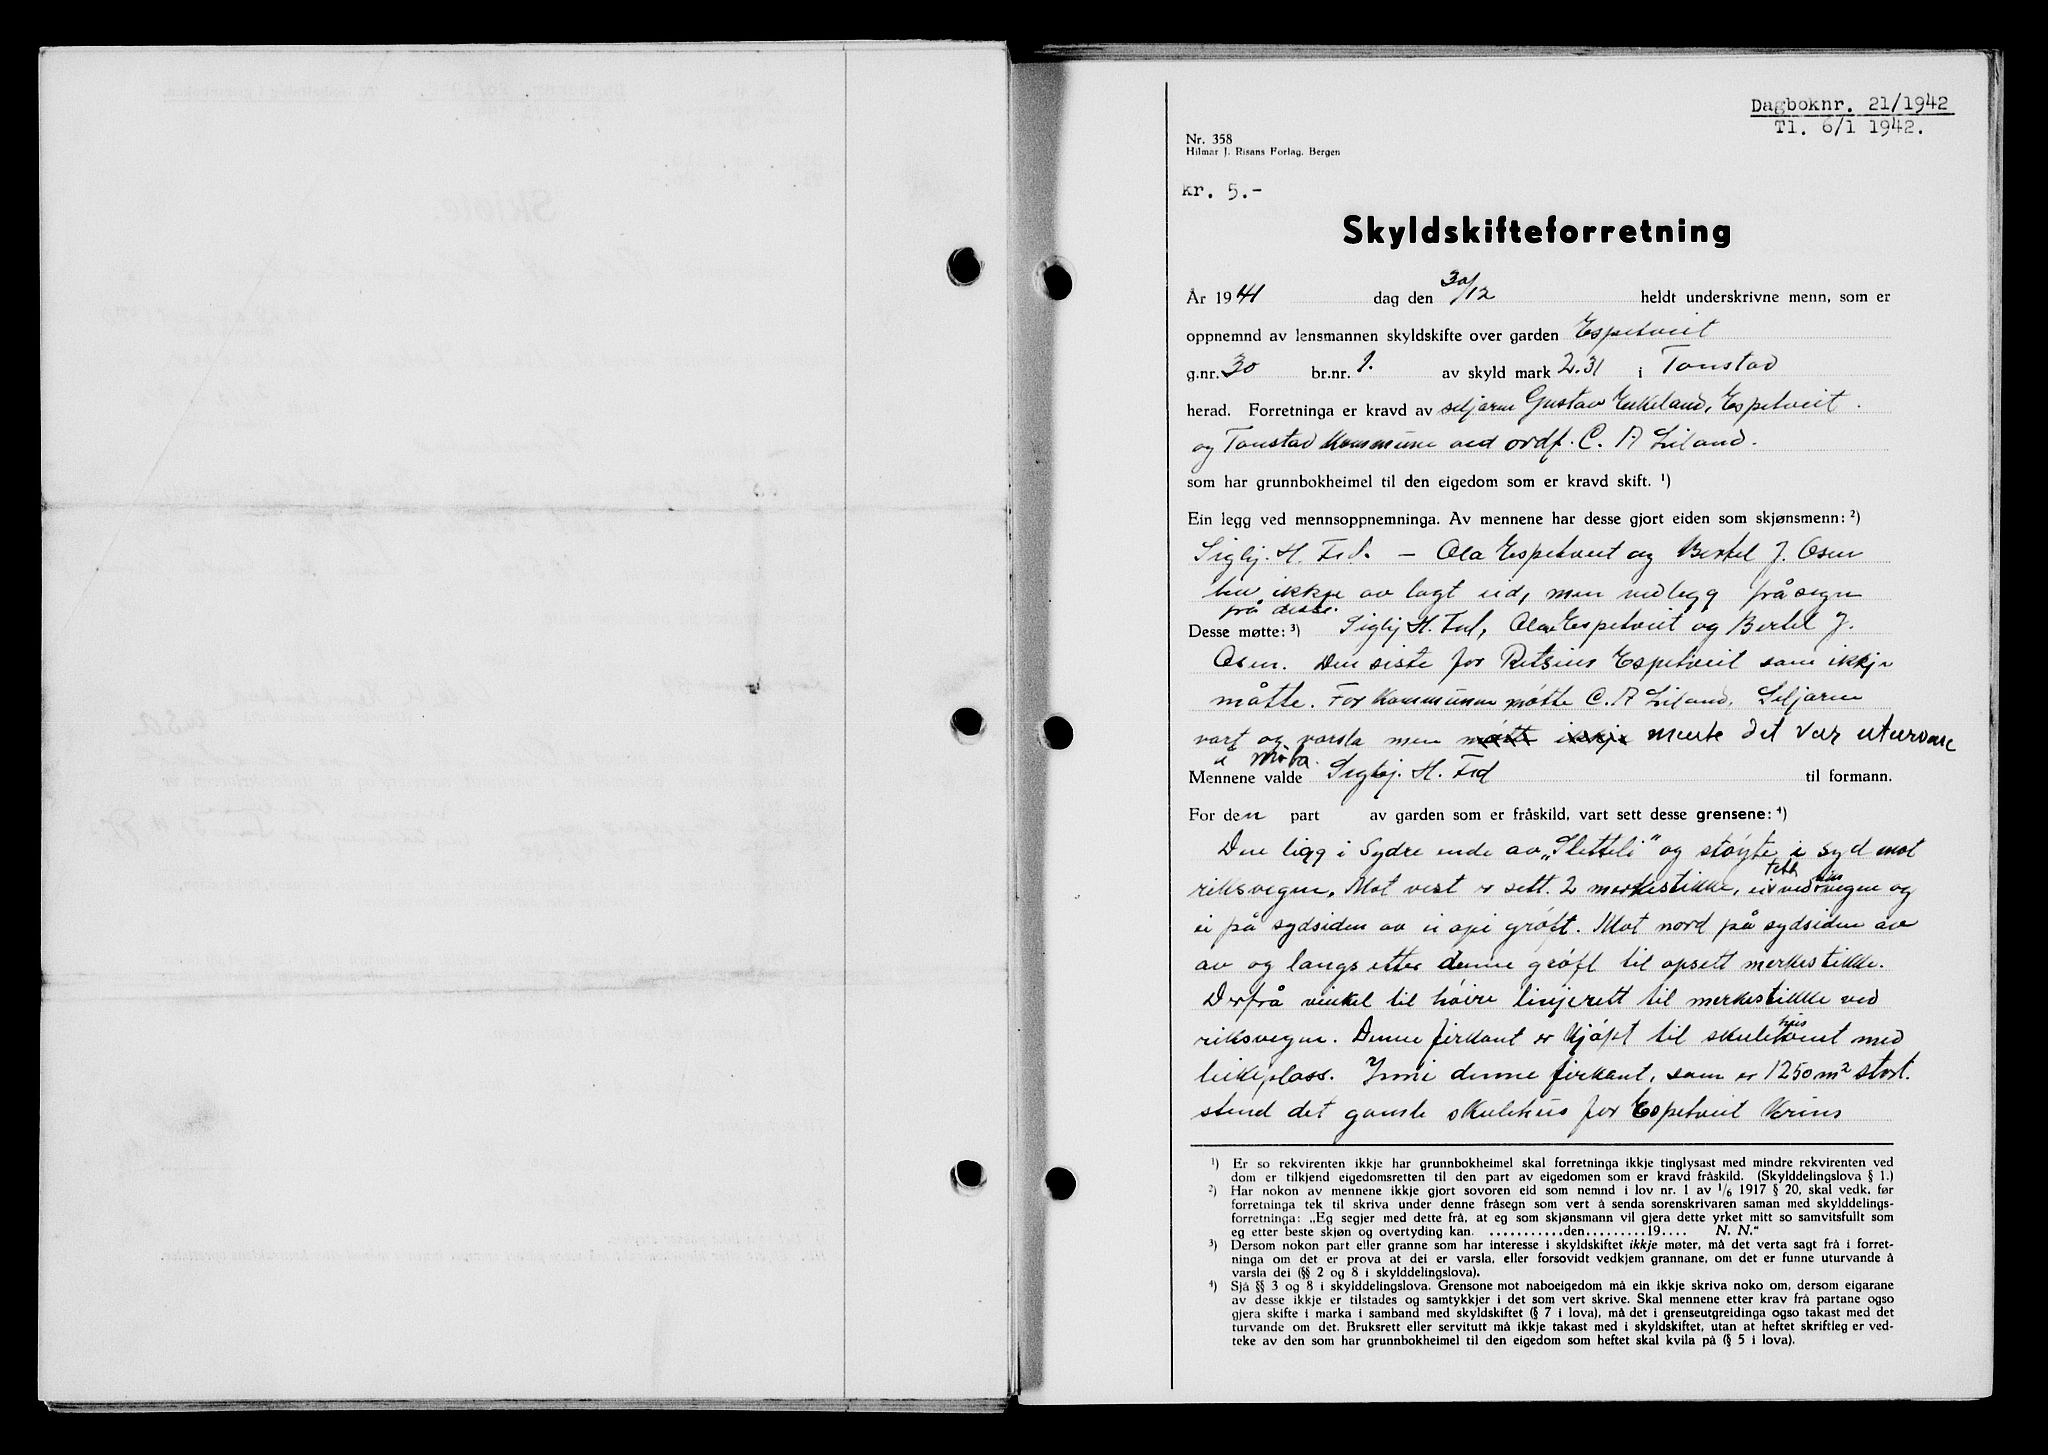 Dagboknr. 21/1942
Tl. 6/1 1942.
Nr. 358
Hilmar J. Risans Forlag. Bergen
kr. 5.-
Skyldskifteforretning
År 1941 dag den 30/12 heldt underskrivne menn, som er
oppnemnd av lensmannen skyldskifte over garden Espetveit
g.nr. 30 br.nr. 1. av skyld mark 2.31 i Tonstad
herad. Forretninga er kravd av seljaren Gustav Eikeland, Espetveit.
og Tonstad Kommune ved ordf. C. A Liland.
som har grunnbokheimel til den eigedom som er kravd skift. ¹)
Ein legg ved mennsoppnemninga. Av mennene har desse gjort eiden som skjønsmenn: ²)
Sigbj. H. Fed. – Ola Espetveit og Bertel J. Osen
har ikkje av lagt eid, men vedlegg fråsegn
frå desse.
Desse møtte: ³) Sigbj H. Fed, Ola Espetveit og Bertel J.
Osen. Den siste for Espetveit som ikkje
måtte. For Kommunen møtte C. A Liland. Seljaren
vart og varsla men møtte ikkje mente det var uturvande
å møta.
Mennene valde Sigbj. H. Fed til formann.
For den part av garden som er fråskild, vart sett desse grensene: ⁴)
Den ligg i Sydre ende av „Sletteli" og støyte i syd mot
riksvegen. Mot vest er sett 2 merkestikke, ei tett ved vegen og
ei på sydsiden av ei opi grøft. Mot nord på sydsiden av
av og langs etter denne grøft til opsett merkestikke.
Derfrå vinkel til høire linjerett til merkestikke ved
riksvegen. Denne firkant er kjøpt til skulehus med
leikeplass. Inni denne firkant, som er 1250 m² stort.
stend det gamle skulehus for Espetveit Krins
¹) Er so rekvirenten ikkje har grunnbokheimel skal forretninga ikkje tinglysast med mindre rekvirenten ved
dom er tilkjend eigedomsretten til den part av eigedomen som er kravd fråskild. (Skylddelingslova § 1.)
²) Har nokon av mennene ikkje gjort sovoren eid som nemnd i lov nr. 1 av 1/6 1917 § 20, skal vedk. før
forretninga tek til skriva under denne fråsegn som vert å senda sorenskrivaren saman med skylddelings-
forretninga: „Eg segjer med dette frå, at eg som skjønsmann vil gjera dette yrket mitt so samvitsfullt som
eg etter beste skjøn og overtyding kan. ...........den.........19.... N. N."
³) Dersom nokon part eller granne som har interesse i skyldskiftet ikkje møter, må det verta sagt frå i forret-
ninga om det er prova at dei er varsla, eller forsovidt vedkjem grannane, om det er funne uturvande å
varsla dei (§§ 2 og 8 i skylddelingslova).
⁴) Sjå §§ 3 og 8 i skylddelingslova. Grensone mot naboeigedom må ein ikkje skriva noko om, dersom eigarane
av desse ikkje er tilstades og samtykkjer i det som vert skrive. Skal mennene etter krav frå partane ogso
gjera skifte i marka i samband med skyldskiftet (§ 7 i lova), må det i grenseutgreidinga ogso takast med det
turvande om det. Bruksrett eller servitutt må ikkje takast med i skyldskiftet, utan at heftet skriftleg er ved-
teke av den som har grunnbokheimel til den eigedom som heftet skal kvila på (§ 5 i lova).